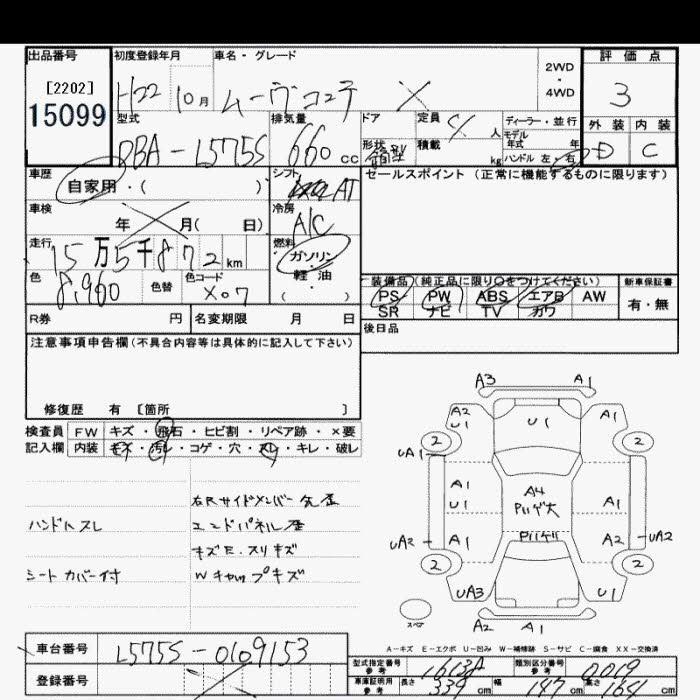 出品番号 初度登録年月 車名・グレード 評価点
[2202] 15099
H22 10月 ムーヴコンテ X 2WD・4WD 3
型式 排気量 ドア 定員 人 ディーラー・並行 外装 内装
DBA-L575S 660cc 形状 箱型 積載 kg モデル年式 年 ハンドル 左・右 D C
車歴 自家用・( ) シフト AT セールスポイント (正常に機能するものに限ります)
車検 年 月( 日) 冷房 A/C
走行 15万5千872km 燃料 ガソリン 軽油 ( )
色 色替 色コード X07 装備品(純正品に限り○をつけてください) 新車保証書
PS PW ABS エアB AW 有・無
SR ナビ TV カワ
R券 円 名変期限 月 日 後日品
注意事項申告欄(不具合内容等は具体的に記入して下さい)
修復歴 有 [箇所 ]
検査員 FW キズ・飛石・ヒビ割・リペア跡・×要
記入欄 内装 キズ・汚レ・コゲ・穴・スレ・キレ・破レ
右Rサイドメンバー先歪
ハンドルスレ エンドパネル歪
キズE.スリキズ
シートカバー付 Wキャップキズ
A3 A1
A2 U1 U1 A1
2 2
UA1
A1 U1 A4 A1
UA2 A1 A2 UA2
2 2
UA3 U1
スペア A2 A1
A-キズ E-エクボ U-凹み W-補修跡 S-サビ C-腐食 XX-交換済
車台番号 L575S-0109153
型式指定番号 参考 類別区分番号 参考
登録番号 車庫証明用 参考 長さ 339cm 幅 147cm 高さ cm